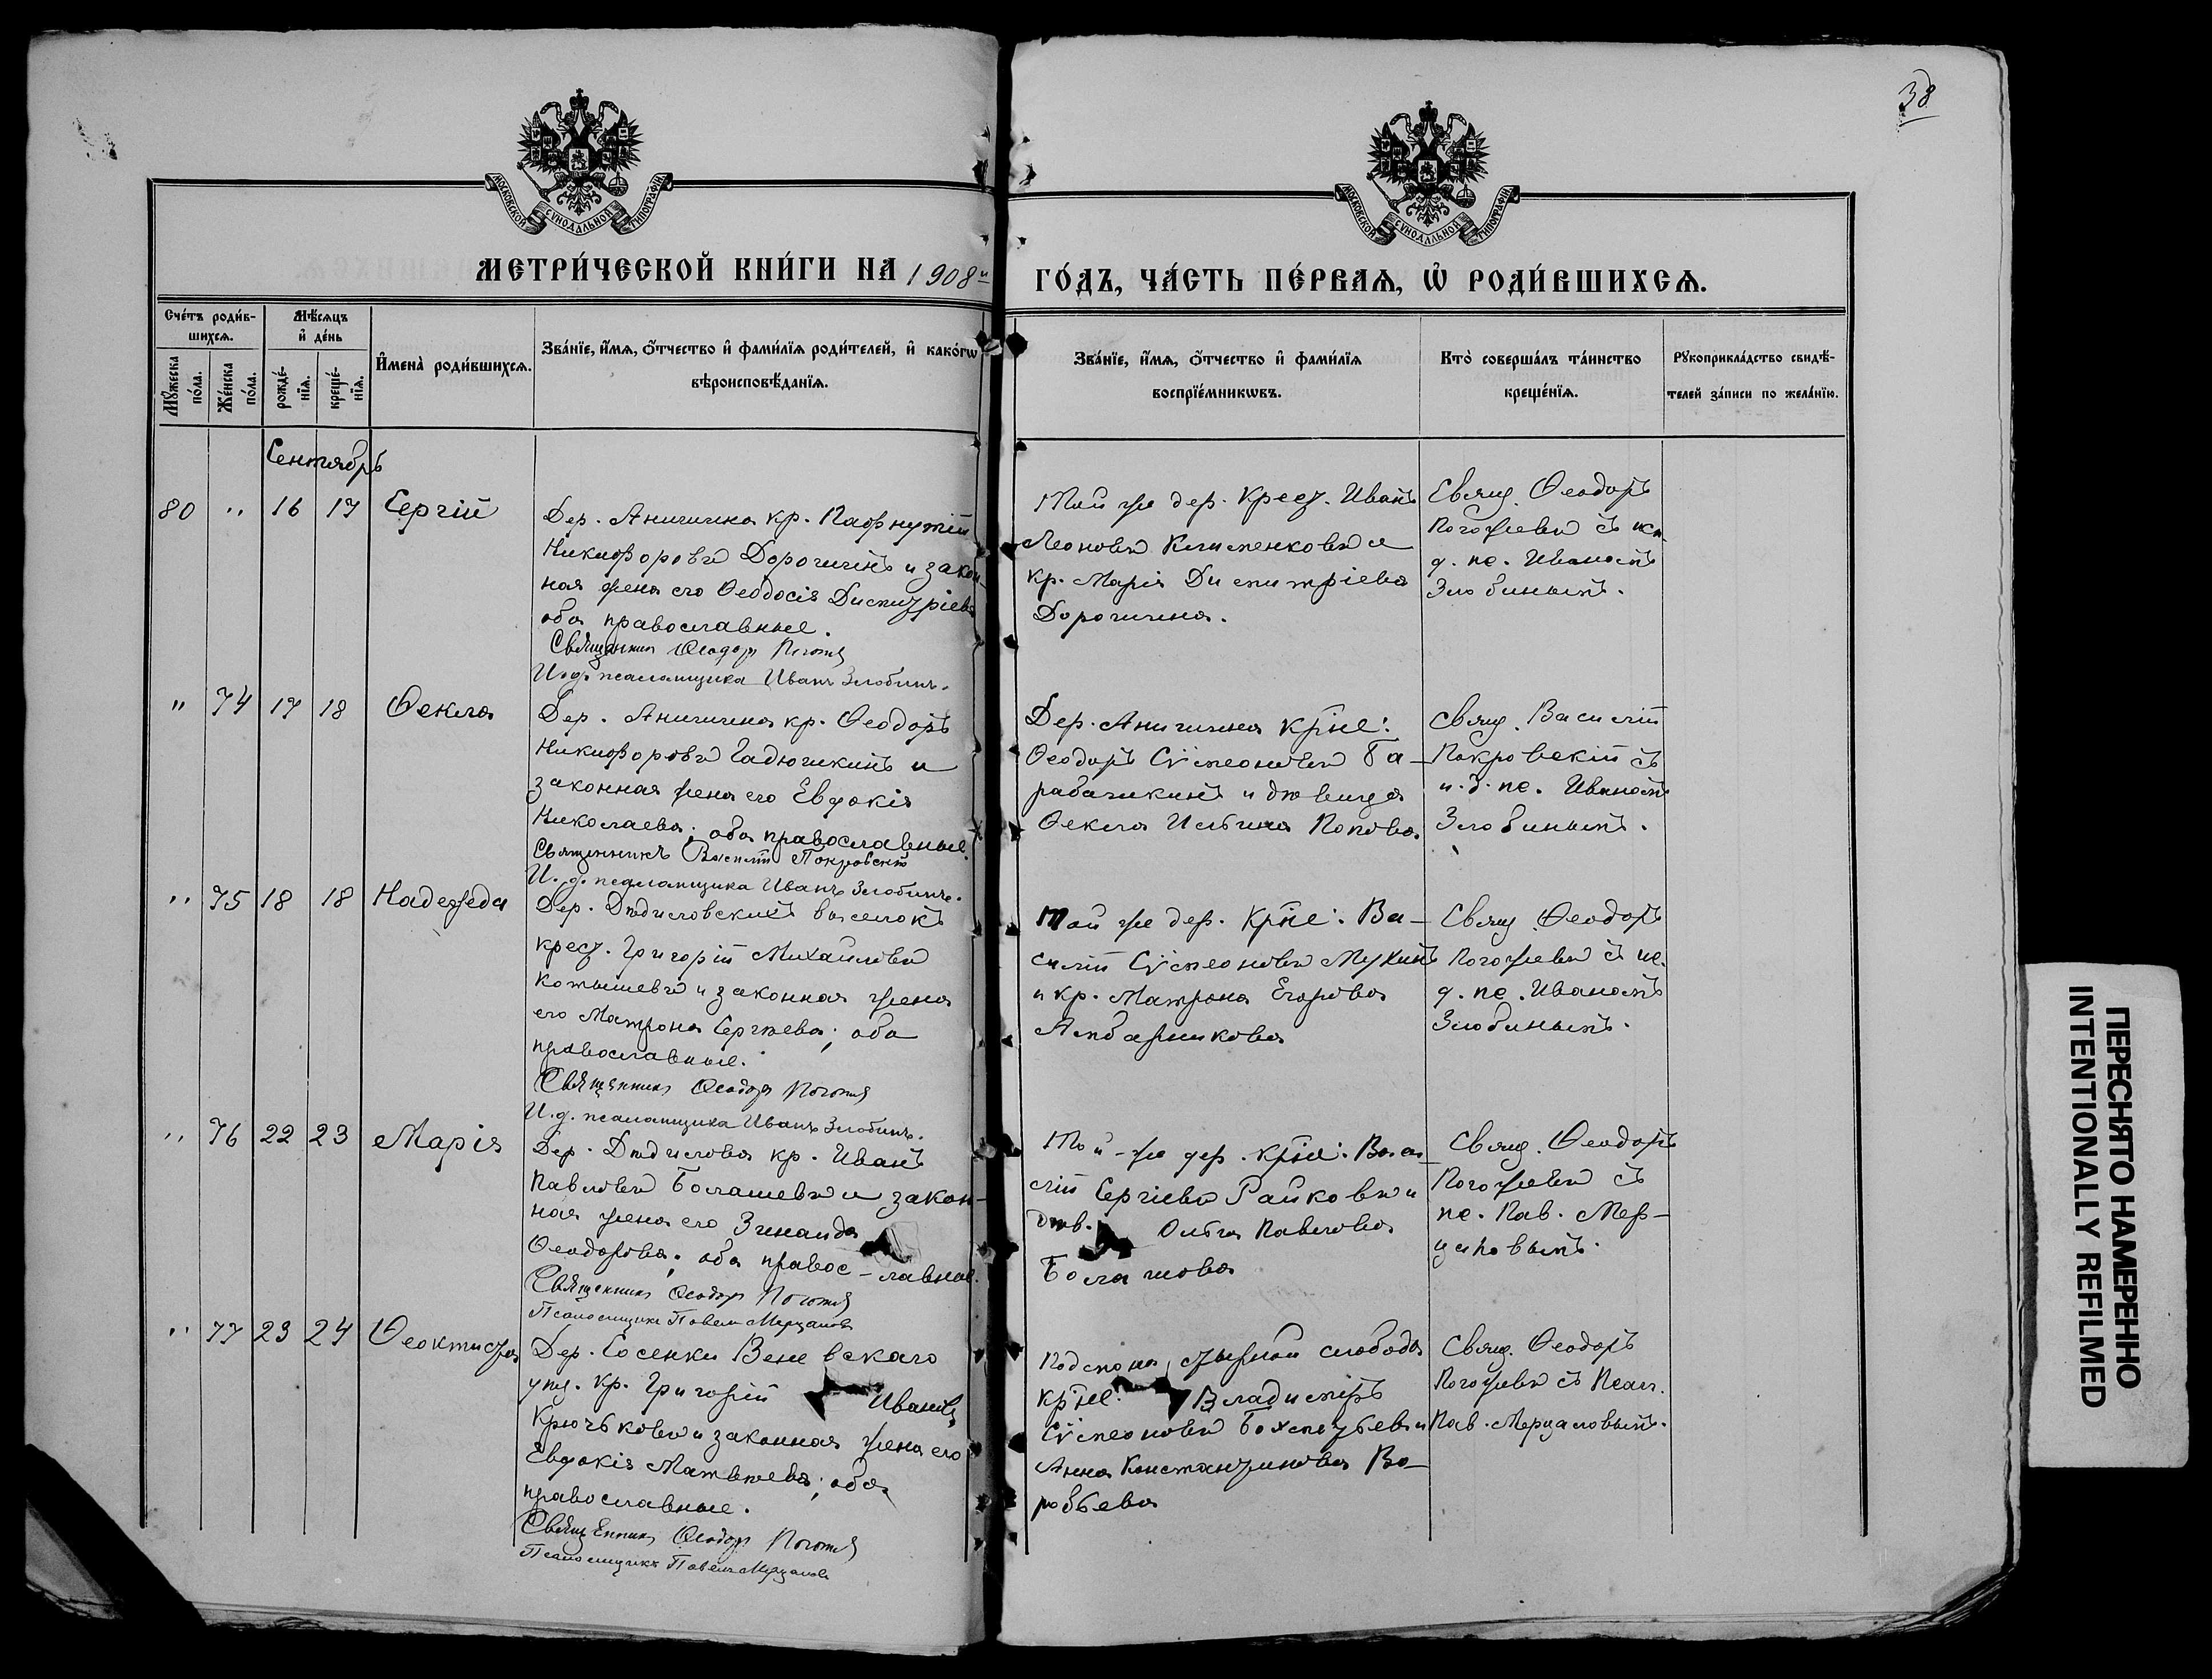 38
МОСКОВСКОЙ СѴНОДАЛЬНОЙ ТИПОГРАФІИ
МОСКОВСКОЙ СѴНОДАЛЬНОЙ ТИПОГРАФІИ
МЕТРИ́ЧЕСКОЙ КНИ́ГИ НА 1908й
ГО́ДЪ, ЧА́СТЬ ПЕ́РВАѦ, Ѡ҆ РОДИ́ВШИХСѦ.
Сче́тъ роди́в-
шихсѧ.
Мѣсѧцъ
и҆ де́нь
Мꙋжеска
по́ла.
Же́нска
по́ла.
рожде́-
нїѧ.
креще́-
нїѧ.
И҆мена̀ роди́вшихсѧ.
Зва́нїе, и҆́мѧ, ѻ҆́тчество и҆ фами́лїѧ роди́телей, и҆ како́гѡ
вѣроисповѣ́данїѧ.
Зва́нїе, и҆́мѧ, ѻ҆́тчество и҆ фами́лїѧ
воспрїе́мникѡвъ.
Кто̀ соверша́лъ та́инство
креще́нїѧ.
Рꙋкоприкла́дство свидѣ́-
телей за́писи по жела́нїю.
Сентябрь
80 " 16 17 Сергій
Дер. Аничина кр. Пафнутій
Никифоровъ Дорогинъ и закон-
ная жена его Ѳеодосія Димитріева
оба православные.
Священникъ Ѳеодоръ
И.д. псаломщика Иванъ Злобинъ.
Той же дер. Крест. Иванъ
Леоновъ Клименковъ и
кр. Марія Димитріева
Дорогинина.
Свящ. Ѳеодоръ
съ
д. пс. Иваномъ
Злобинымъ.
" 74 17 18 Ѳекла
Дер. Аничина кр. Ѳеодоръ
Никифоровъ Гадючкинъ и
законная жена его Евдокія
Николаева; оба православные.
Священникъ Василій Покровскій
И.д. псаломщика Иванъ Злобинъ.
Дер. Аничина кр̃не:
Ѳеодоръ Сѵмеоновъ Та-
рабачикинъ и дѣвица
Ѳекла Ильина Попова
Свящ. Василій
Покровскій съ
и. д. пс. Иваномъ
Злобинымъ.
" 75 18 18 Надежда
Дер. Дѣдиловскихъ выселокъ
крест. Григорій Михайловъ
Котышевъ и законная жена
его Матрона Сергѣева; оба
православные.
Священникъ Ѳеодоръ
И.д. псаломщика Иванъ Злобинъ.
Той же дер. Кр̃не: Ва-
силій Сѵмеоновъ Мухинъ
и кр. Матрона Егорова
Амбарникова
Свящ. Ѳеодоръ
съ
д. пс. Иваномъ
Злобинымъ.
" 76 22 23 Марія
Дер. Дѣдилова кр. Иванъ
Павловъ Болашевъ и закон-
ная жена его Зинаида
Ѳеодорова; оба правос-лавные.
Священникъ Ѳеодоръ
Псаломщикъ Павелъ Мерцаловъ
Той-же дер. кр̃не: Васи-
лій Сергіевъ Райковъ и
дѣв. Ольга Павлова
Болашова
Свящ. Ѳеодоръ
съ
пс. Пав. Мер-
цаловымъ.
" 77 23 24 Ѳеоктиста
Дер. Сосенки Веневскаго
уѣз. кр. Григорій Ивановъ
Крючьковъ и законная жена его
Евдокія Матвѣева; оба
православные.
Священникъ Ѳеодоръ
Псаломщикъ Павелъ Мерцаловъ
слобода
кр̃не: Владиміръ
Сѵмеоновъ и
Анна Константинова Во-
робьева
Свящ. Ѳеодоръ
съ Псал.
Пав. Мерцаловымъ.
ПЕРЕСНЯТО НАМЕРЕННО
INTENTIONALLY REFILMED